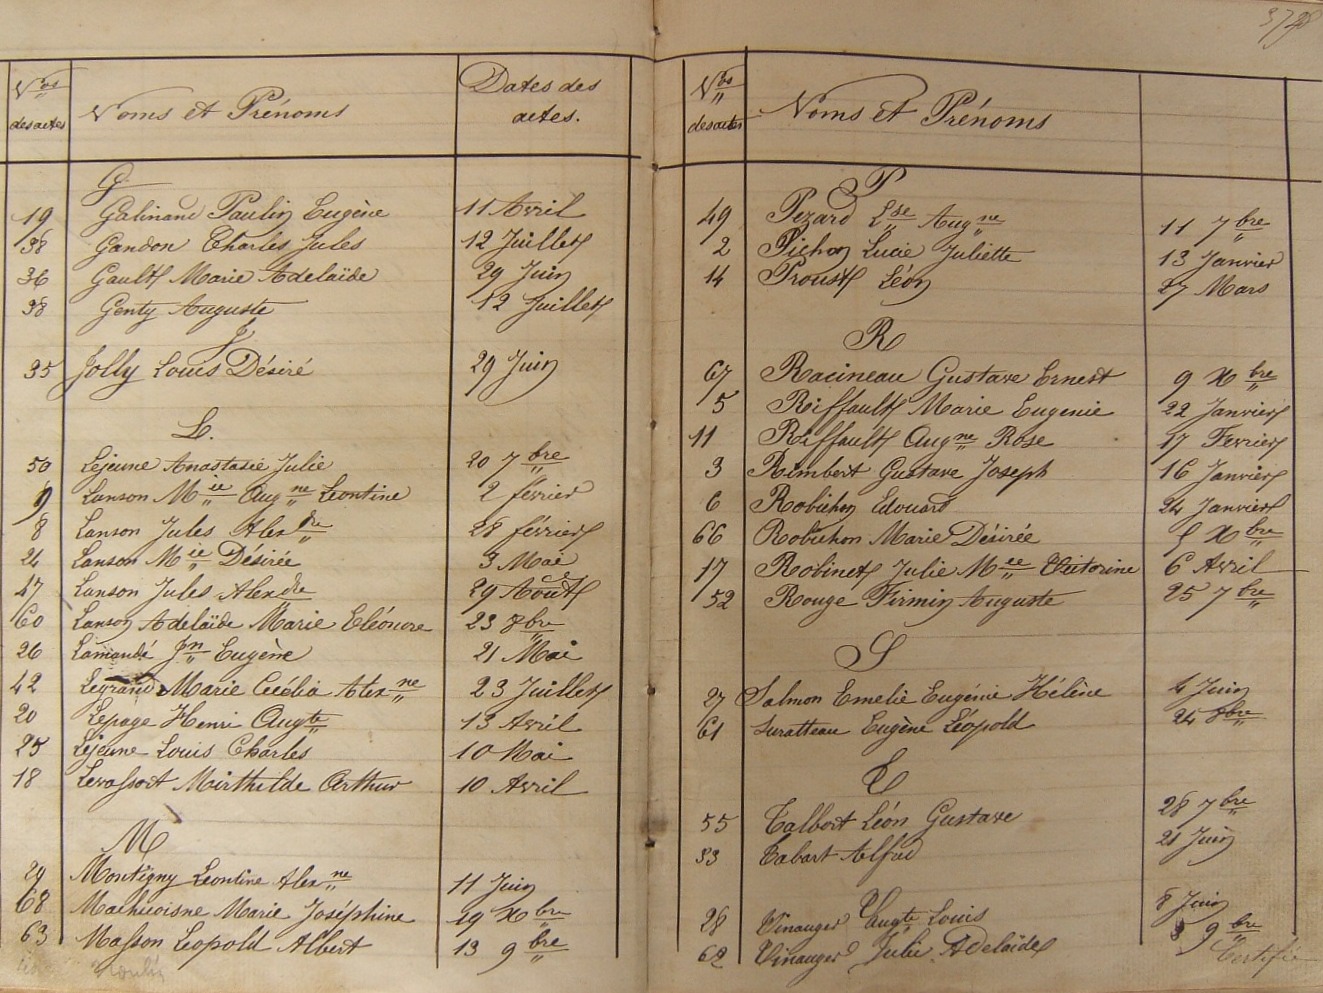 Nos des actes Noms et Prénoms Dates des actes.
G
19 Galinand Paulin Eugène 11 Avril
38 Gandon Charles Jules 12 Juillet
36 Gault Marie Adelaïde 29 Juin
38 Genty Auguste 12 Juillet
J
35 Jolly Louis Désiré 29 Juin
L.
50 Lejeune Anastasie Julie 20 7bre
9 Lanson Mee Augne Leontine 2 février
8 Lanson Jules Alexdre 28 février
24 Lanson Mee Désirée 3 Mai
47 Lanson Jules Alexdre 29 Août
60 Lanson Adelaïde Marie Eléonore 23 8bre
26 Lamandé Jn Eugène 21 Mai
42 Legrand Marie Cécélia Alexne 23 Juillet
20 Lepage Henri Augte 13 Avril
25 Lejeune Louis Charles 10 Mai
18 Levassort Mirthilde Arthur 10 Avril
M
29 Montigny Leontine Alexne 11 Juin
68 Marie Joséphine 29 Xbre
63 Masson Leopold Albert 13 9bre
Nos des actes Noms et Prénoms
P
49 Pezard Lse Augne 11 7bre
2 Pichon Lucie Juliette 13 Janvier
14 Proust Léon 27 Mars
R
67 Racineau Gustave Ernest 9 Xbre
5 Riffault Marie Eugenie 22 Janvier
11 Riffault Augne Rose 17 Fevrier
3 Rimbert Gustave Joseph 16 Janvier
6 Robichon Edouard 24 Janvier
66 Robichon Marie Désirée Xbre
17 Robinet Julie Mee Victorine 6 Avril
52 Rouge Firmin Auguste 25 7bre
S
27 Salmon Emelie Eugénie Hélène 4 Juin
61 Suratteau Eugène Léopold 24 8bre
T
55 Talbert Léon Gustave 28 7bre
33 Tabart Alfred 21 Juin
V
28 Vinauger Augte Louis 8 Juin
62 Vinauger Julie Adelaïde 8 9bre
Certifié